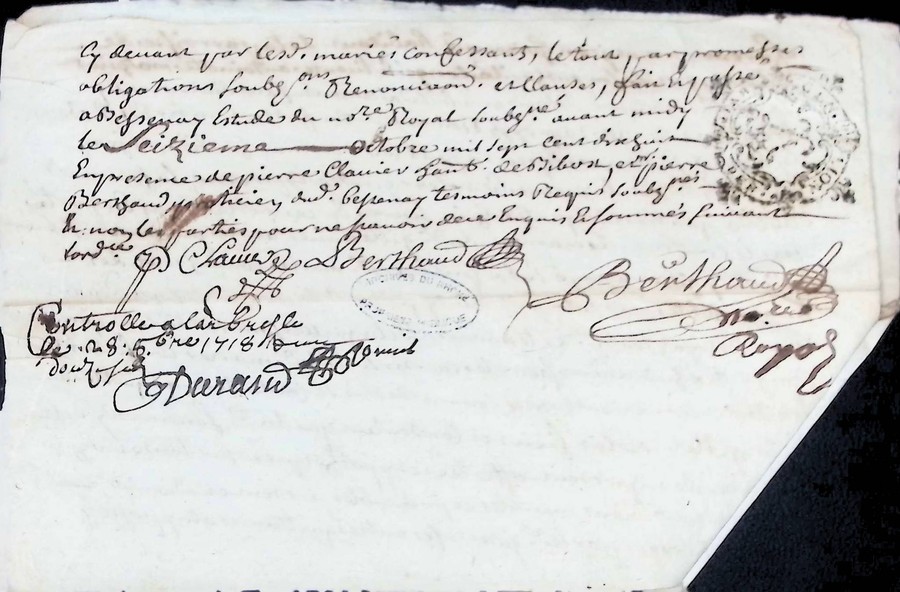 Cy devant par lesd.s mariés confessants, le tout par promesses
obligations soubz.ons Renonciaon. et clauses, fait Et passé
a Bessenay Estude du no.re Royal soubz.né avant midy
le Seizieme Octobre mil sept cent dix huit
En presence de pierre Clavier hant. de Bibost, et pierre
Berthaud praticien dud. bessenay tesmoins Requis soubz.nés
& non les parties pour ne sçavoir de ce Enquis Et sommés suivant
lord.ce
P Clavier Berthaud
Berthaud
No.re
Royal
ARCHIVES DU RHONE
Controllé a Larbresle
le 28. 8.bre 1718
douze sols
Durand